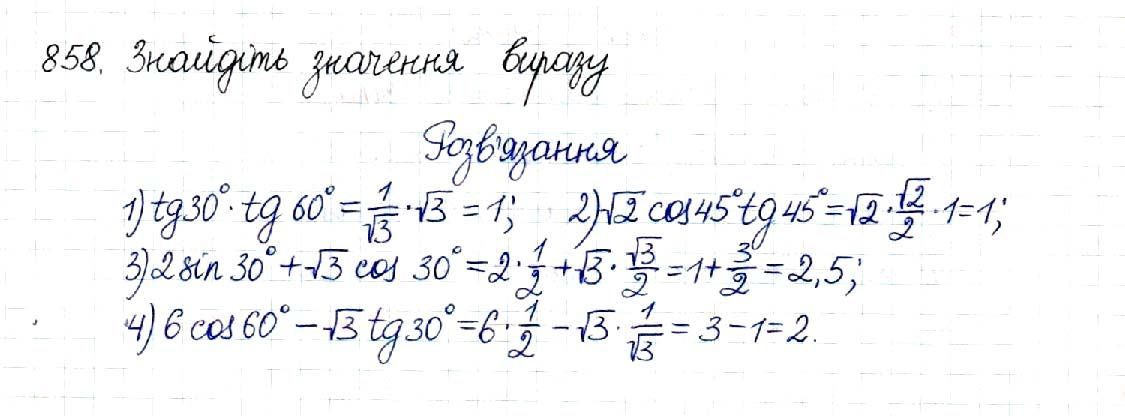 858. Знайдіть значення виразу
Розв'язання
1) tg30°·tg 60° = 1/√3 · √3 = 1; 2) √2 cos45° tg45° = √2 · √2/2 · 1 = 1;
3) 2 sin 30° + √3 cos 30° = 2 · 1/2 + √3 · √3/2 = 1 + 3/2 = 2,5;
4) 6 cos 60° − √3 tg 30° = 6 · 1/2 − √3 · 1/√3 = 3 − 1 = 2.